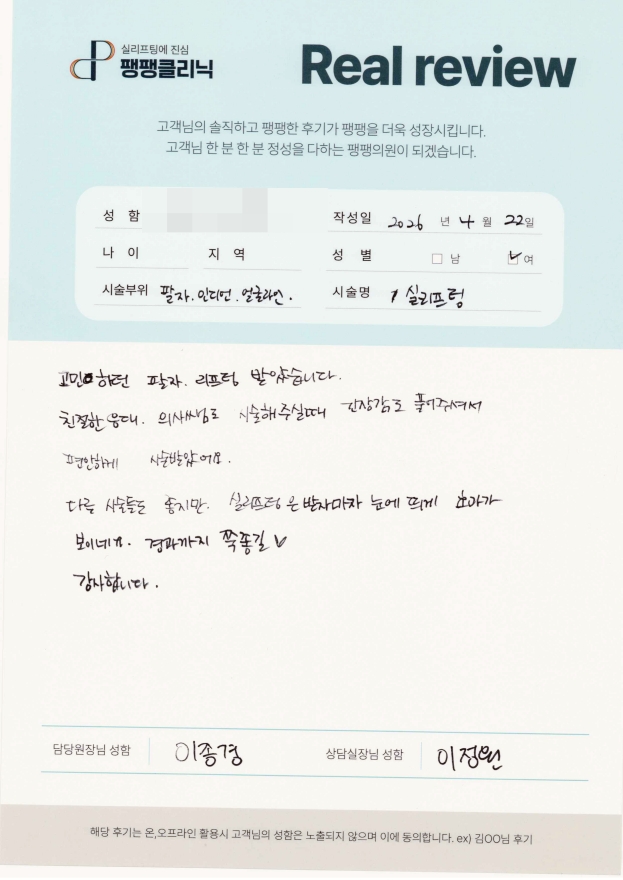 실리프팅에 진심
팽팽클리닉
Real review
고객님의 솔직하고 팽팽한 후기가 팽팽을 더욱 성장시킵니다.
고객님 한 분 한 분 정성을 다하는 팽팽의원이 되겠습니다.
성 함
작성일 2026 년 4 월 22일
나 이 지 역
성 별 남 여
시술부위 팔자. 인디언. 얼굴라인.
시술명 실리프팅
고민하던 팔자. 리프팅 받았습니다.
친절한 응대. 의사쌤도 시술해주실때 긴장감도 풀어주셔서
편안하게 시술받았어요.
다른 시술들도 좋지만. 실리프팅은 받자마자 눈에 띄게 효과가
보이네요. 경과까지 쭉쭉길
감사합니다.
담당원장님 성함 이종경
상담실장님 성함 이정원
해당 후기는 온,오프라인 활용시 고객님의 성함은 노출되지 않으며 이에 동의합니다. ex) 김OO님 후기